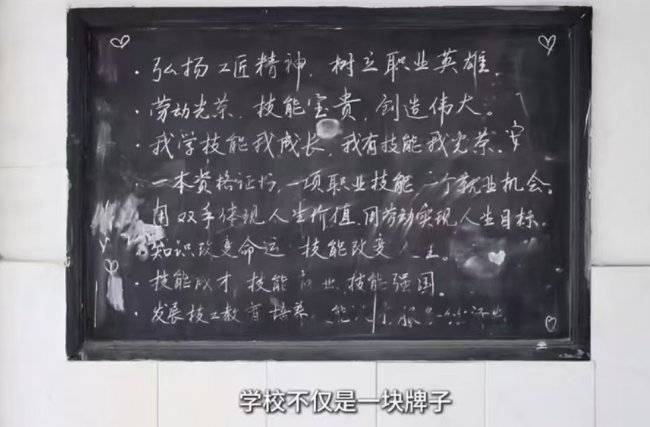 · 弘扬工匠精神，树立职业英雄。
· 劳动光荣，技能宝贵，创造伟大。
· 我学技能我成长，我有技能我光荣。 安
· 一本资格证书，一项职业技能，一个就业机会。
用双手体现人生价值，用劳动实现人生目标。
· 知识改变命运 技能改变人生。
· 技能成才，技能 业，技能强国。
· 发展技工教育 培养 能
学校不仅是一块牌子